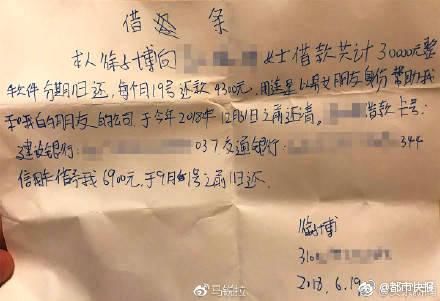 借 条
本人徐占博向 女士借款共计30000元整
软件分期归还,每个月19号还款4300元,用途是以男女朋友身份帮助我
和我的朋友的公司于今年2018年12月31日之前还清。 借款卡号:
建设银行: 037交通银行: 344
信用卡借予我6900元,于9月 号之前归还.
310
2018.6.19
@马锐拉
@都市快报